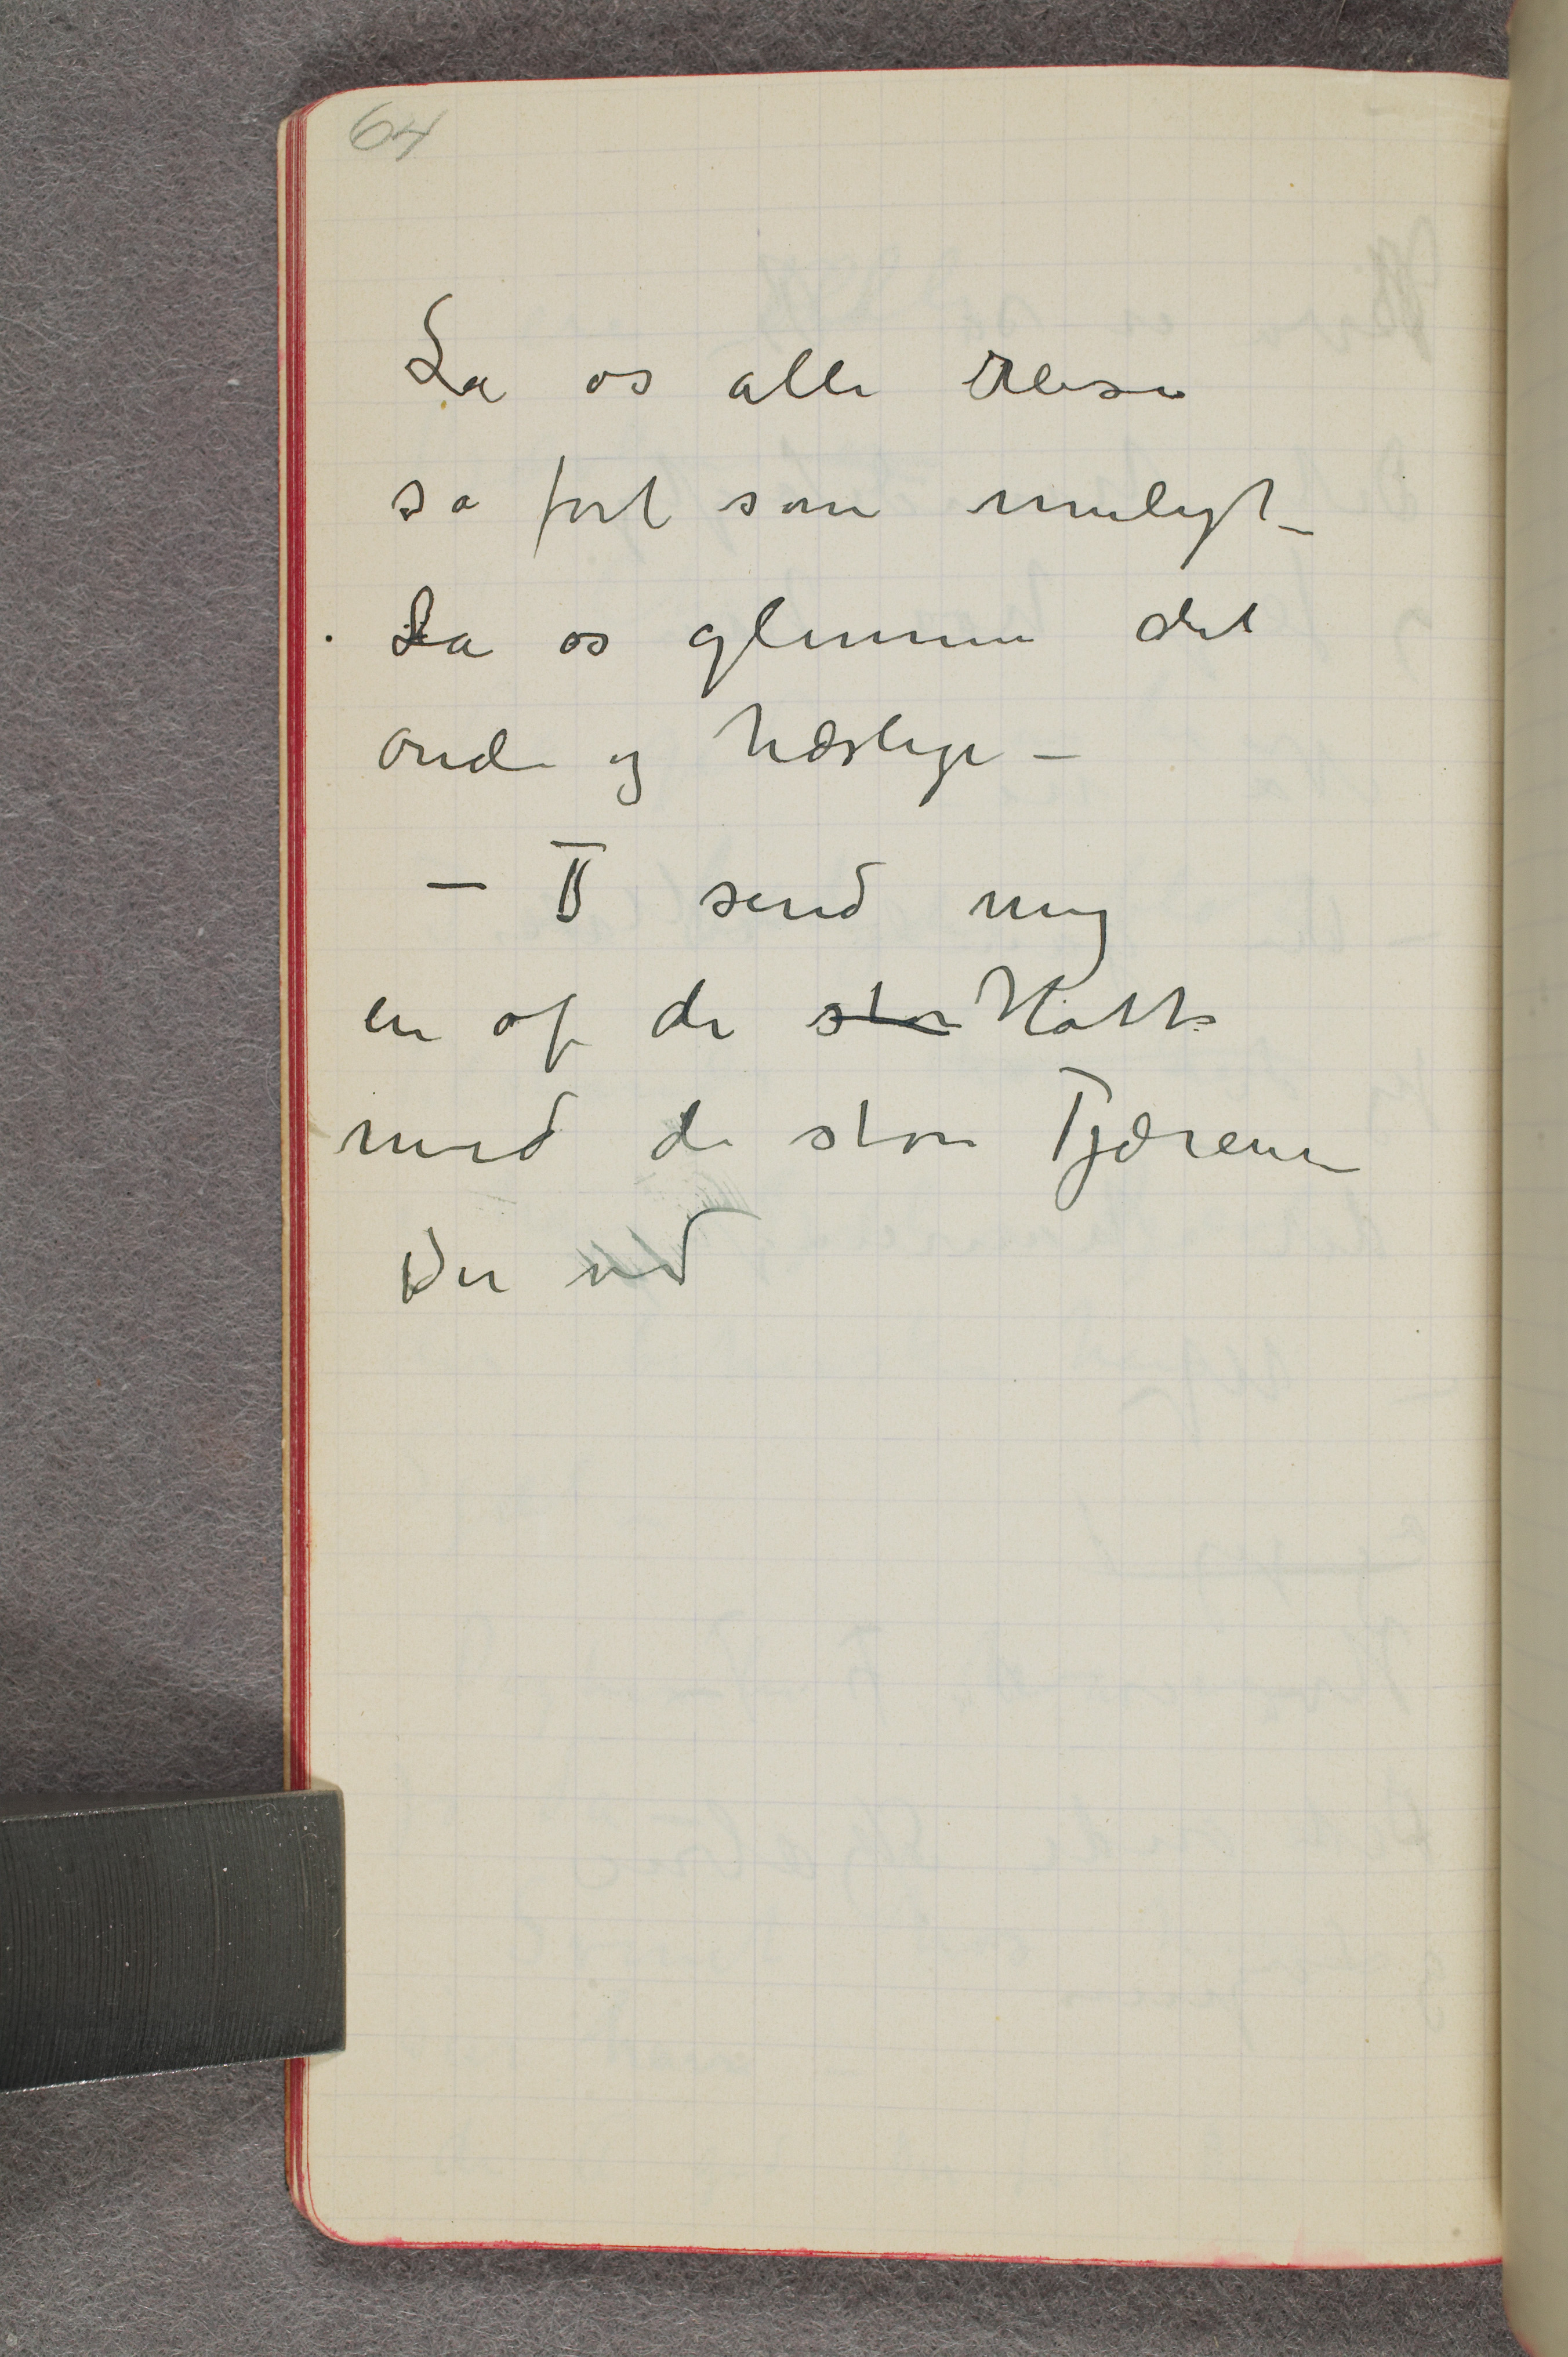 64
La os alle reise
så fort som muligt –
La os glemme det
onde og hæslige –
– T send mig
en af de stor Hatte
med de store Fjærene
Der ved